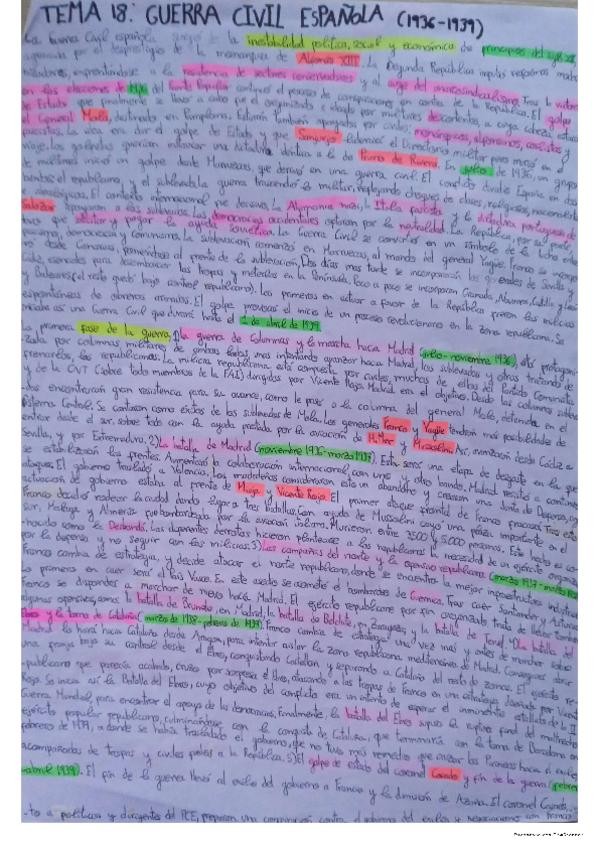 TEMA 18: GUERRA CIVIL ESPAÑOLA (1936-1939)
La Guerra Civil española surge de la inestabilidad política, social y económica de principios del siglo XX,
por el desprestigio de la monarquía de Alfonso XIII. La Segunda República impulsó reformas
enfrentándose a la resistencia de sectores conservadores y al auge del anarcosindicalismo. Tras la victoria
en las elecciones de del Frente Popular continuó el proceso de en contra de la República. El golpe
de Estado que finalmente se llevó a cabo fue el organizado e ideado por militares descontentos, a cuya cabeza estuvo
el General Mola, destinado en Pamplona. Estarán también apoyados por carlistas, monárquicos, alfonsinos, y
La idea era dar el golpe de Estado y que Sanjurjo el Directorio militar pero murió en el
viaje. Los golpistas querían instaurar una dictadura idéntica a la de Primo de Rivera. En julio de 1936, un grupo
de militares inició un golpe desde Marruecos, que derivó en una guerra civil. El conflicto dividió España en dos
bandos: el republicano, y el sublevado. La guerra trascendió lo militar, reflejando choques de clases, religiosos, nacionalistas
e ideológicos. El contexto internacional que la Alemania nazi, la Italia fascista y la dictadura portuguesa de
Salazar apoyaron a los sublevados. Las democracias occidentales optaron por la neutralidad. La República, por su parte,
tuvo que solicitar y pagar la ayuda soviética. La Guerra Civil se convirtió en un símbolo de la lucha entre
fascismo, democracia y comunismo. La sublevación comenzó en Marruecos, al mando del general Yagüe. Franco se incorporó
desde Canarias, poniéndose al frente de la sublevación. Dos días más tarde se incorporarán los generales de Sevilla y
esenciales para desembarcar las tropas y meterlas en la Península. Poco a poco se incorporan Granada, Navarra, Castilla y León
y Baleares (el resto quedó bajo control republicano). Los primeros en actuar a favor de la República fueron las milicias
espontáneas de obreros armados. El golpe provocó el inicio de un proceso revolucionario en la zona republicana. Se
iniciaba así una Guerra Civil que durará hasta el 1 de abril de 1939.
La primera fase de la guerra, 1) la guerra de columnas y la marcha hacia Madrid (julio-noviembre 1936), está protagoni-
zada por columnas militares de ambos bandos, unas intentando avanzar hacia Madrid, los sublevados y otras tratando de
frenarlos, los republicanos. La milicia republicana está compuesta por civiles, muchos de ellos del Partido Comunista
y de la CNT (sobre todo miembros de la FAI) dirigidos por Vicente Rojo. Madrid era el objetivo. Desde las columnas
encontrarán gran resistencia para su avance, como le pasó a la columna del general Mola, detenida en el
Sistema Central. Se contaron como éxitos de las sublevadas de Mola. Los generales Franco y Yagüe tendrán más posibilidades de
entrar desde el sur, sobre todo con la ayuda prestada por la aviación de Hitler y Mussolini. Así, avanzarán desde Cádiz a
Sevilla, y por Extremadura. 2) La batalla de Madrid (noviembre 1936-marzo 1937). Esta será una etapa de desgaste en la que
se estabilizarán los frentes. Aumentará la colaboración internacional, con uno y otro bando. Madrid resistió a continuos
ataques. El gobierno trasladó a Valencia. Los madrileños consideraron esto un abandono y crearon una Junta de Defensa, cuya
actuación de gobierno estaba al frente de Miaja y Vicente Rojo. El primer ataque frontal de Franco fracasó. Tras esto
Franco decidió rodear la ciudad dando lugar a tres batallas. Con ayuda de Mussolini cayó una plaza importante en el
sur, Málaga y Almería fue bombardeada por la aviación italiana. Murieron entre 3500 y 5000 personas. Este hecho es co-
nocido como la Desbandá. Las siguientes derrotas hicieron plantearse a los republicanos la necesidad de un ejército organizado
por la dispersa y no seguir con las milicias. 3) Las campañas del norte y la ofensiva republicana (marzo 1937-marzo 1938)
Franco cambia de estrategia, y decide atacar el norte republicano, donde se encuentra la mejor infraestructura industrial.
La primera en caer será el País Vasco. En este asedio se acometió el bombardeo de Guernica. Tras caer Santander y Asturias
Franco se dispondrá a marchar de nuevo hacia Madrid. El ejército republicano por fin organizado trata de llevar también
algunas ofensivas, como la batalla de Brunete, en Madrid, la batalla de Belchite, en Zaragoza, y la batalla de Teruel. 4) La batalla del
Ebro y la toma de Cataluña (marzo 1938-febrero de 1939). Franco cambia de estrategia una vez más y antes de marchar sobre
Madrid lo hará hacia Cataluña desde Aragón, para intentar aislar la zona republicana mediterránea de Madrid. Consiguen abrir
una franja bajo su control desde el Ebro, conquistando Castellón y separando a Cataluña del resto de zonas. El ejército re-
publicano que parecía acabado, cruzó por sorpresa el Ebro, atacando a las tropas de Franco en una estrategia diseñada por Vicente
Rojo. Se inicia así la Batalla del Ebro, cuyo objetivo del conflicto era un intento de esperar el inminente estallido de la II
Guerra Mundial, para encontrar el apoyo de las democracias. Finalmente, la batalla del Ebro supuso la ruptura final del maltrecho
ejército popular republicano, culminándose con la conquista de Cataluña, que terminaría con la toma de Barcelona en
febrero de 1939, a donde se había trasladado el gobierno, que no tuvo más remedio que cruzar los Pirineos hacia el exilio,
acompañados de tropas y civiles fieles a la República. 5) El golpe de estado del coronel Casado y fin de la guerra (febrero
-abril 1939). El fin de la guerra llevó al exilio del gobierno a Francia y la dimisión de Azaña. El coronel Casado,
-to a políticos y dirigentes del PCE, preparan una conspiración contra el gobierno del exilio y negociación con Franco